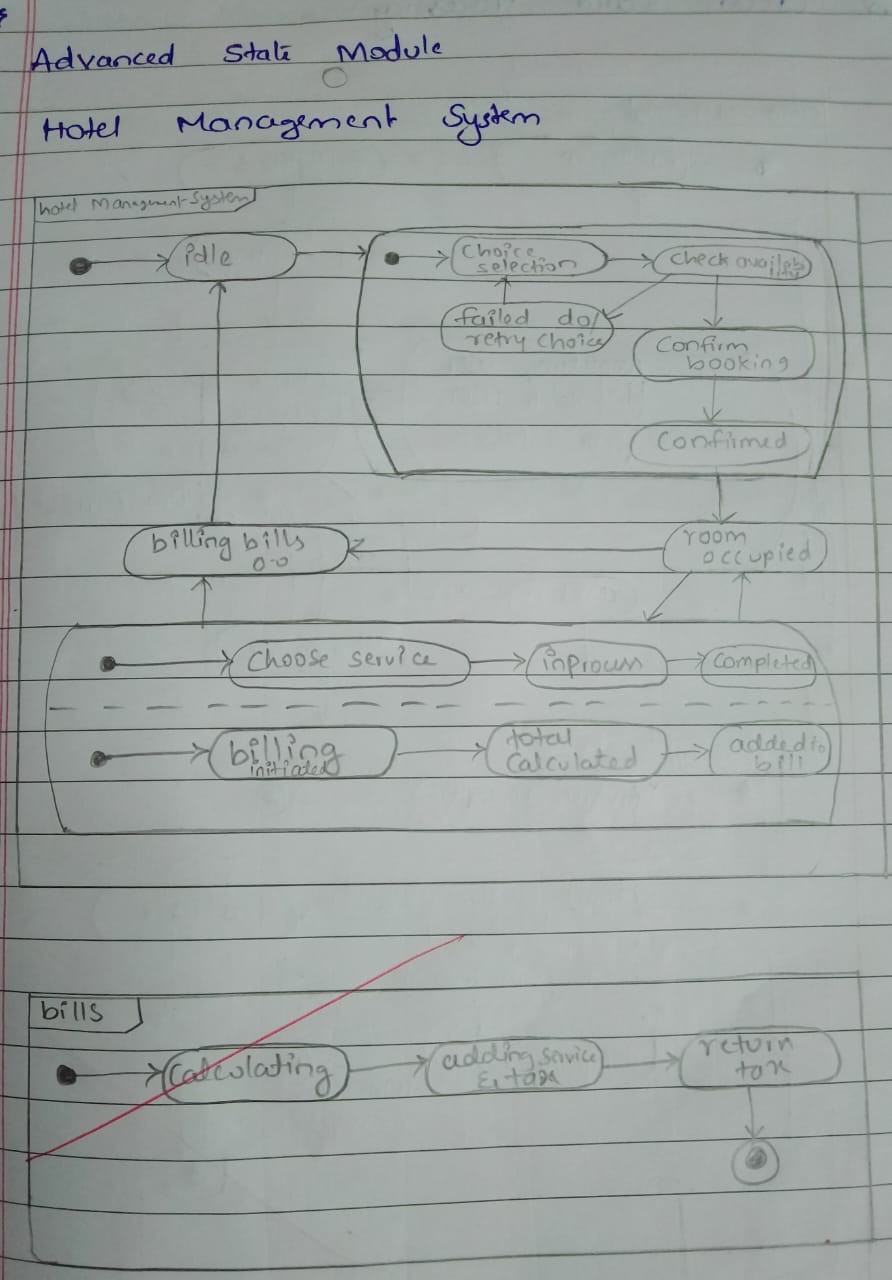 Advanced State Module
Hotel Management System
hotel Managment System
idle
Choice
selection
Check availab
failed do/
retry choice
Confirm
booking
Confirmed
billing bills
o-o
room
occupied
Choose service
Completed
billing
initiated
total
Calculated
added to
bill
bills
Calculating
adding service
& tax
return
tax